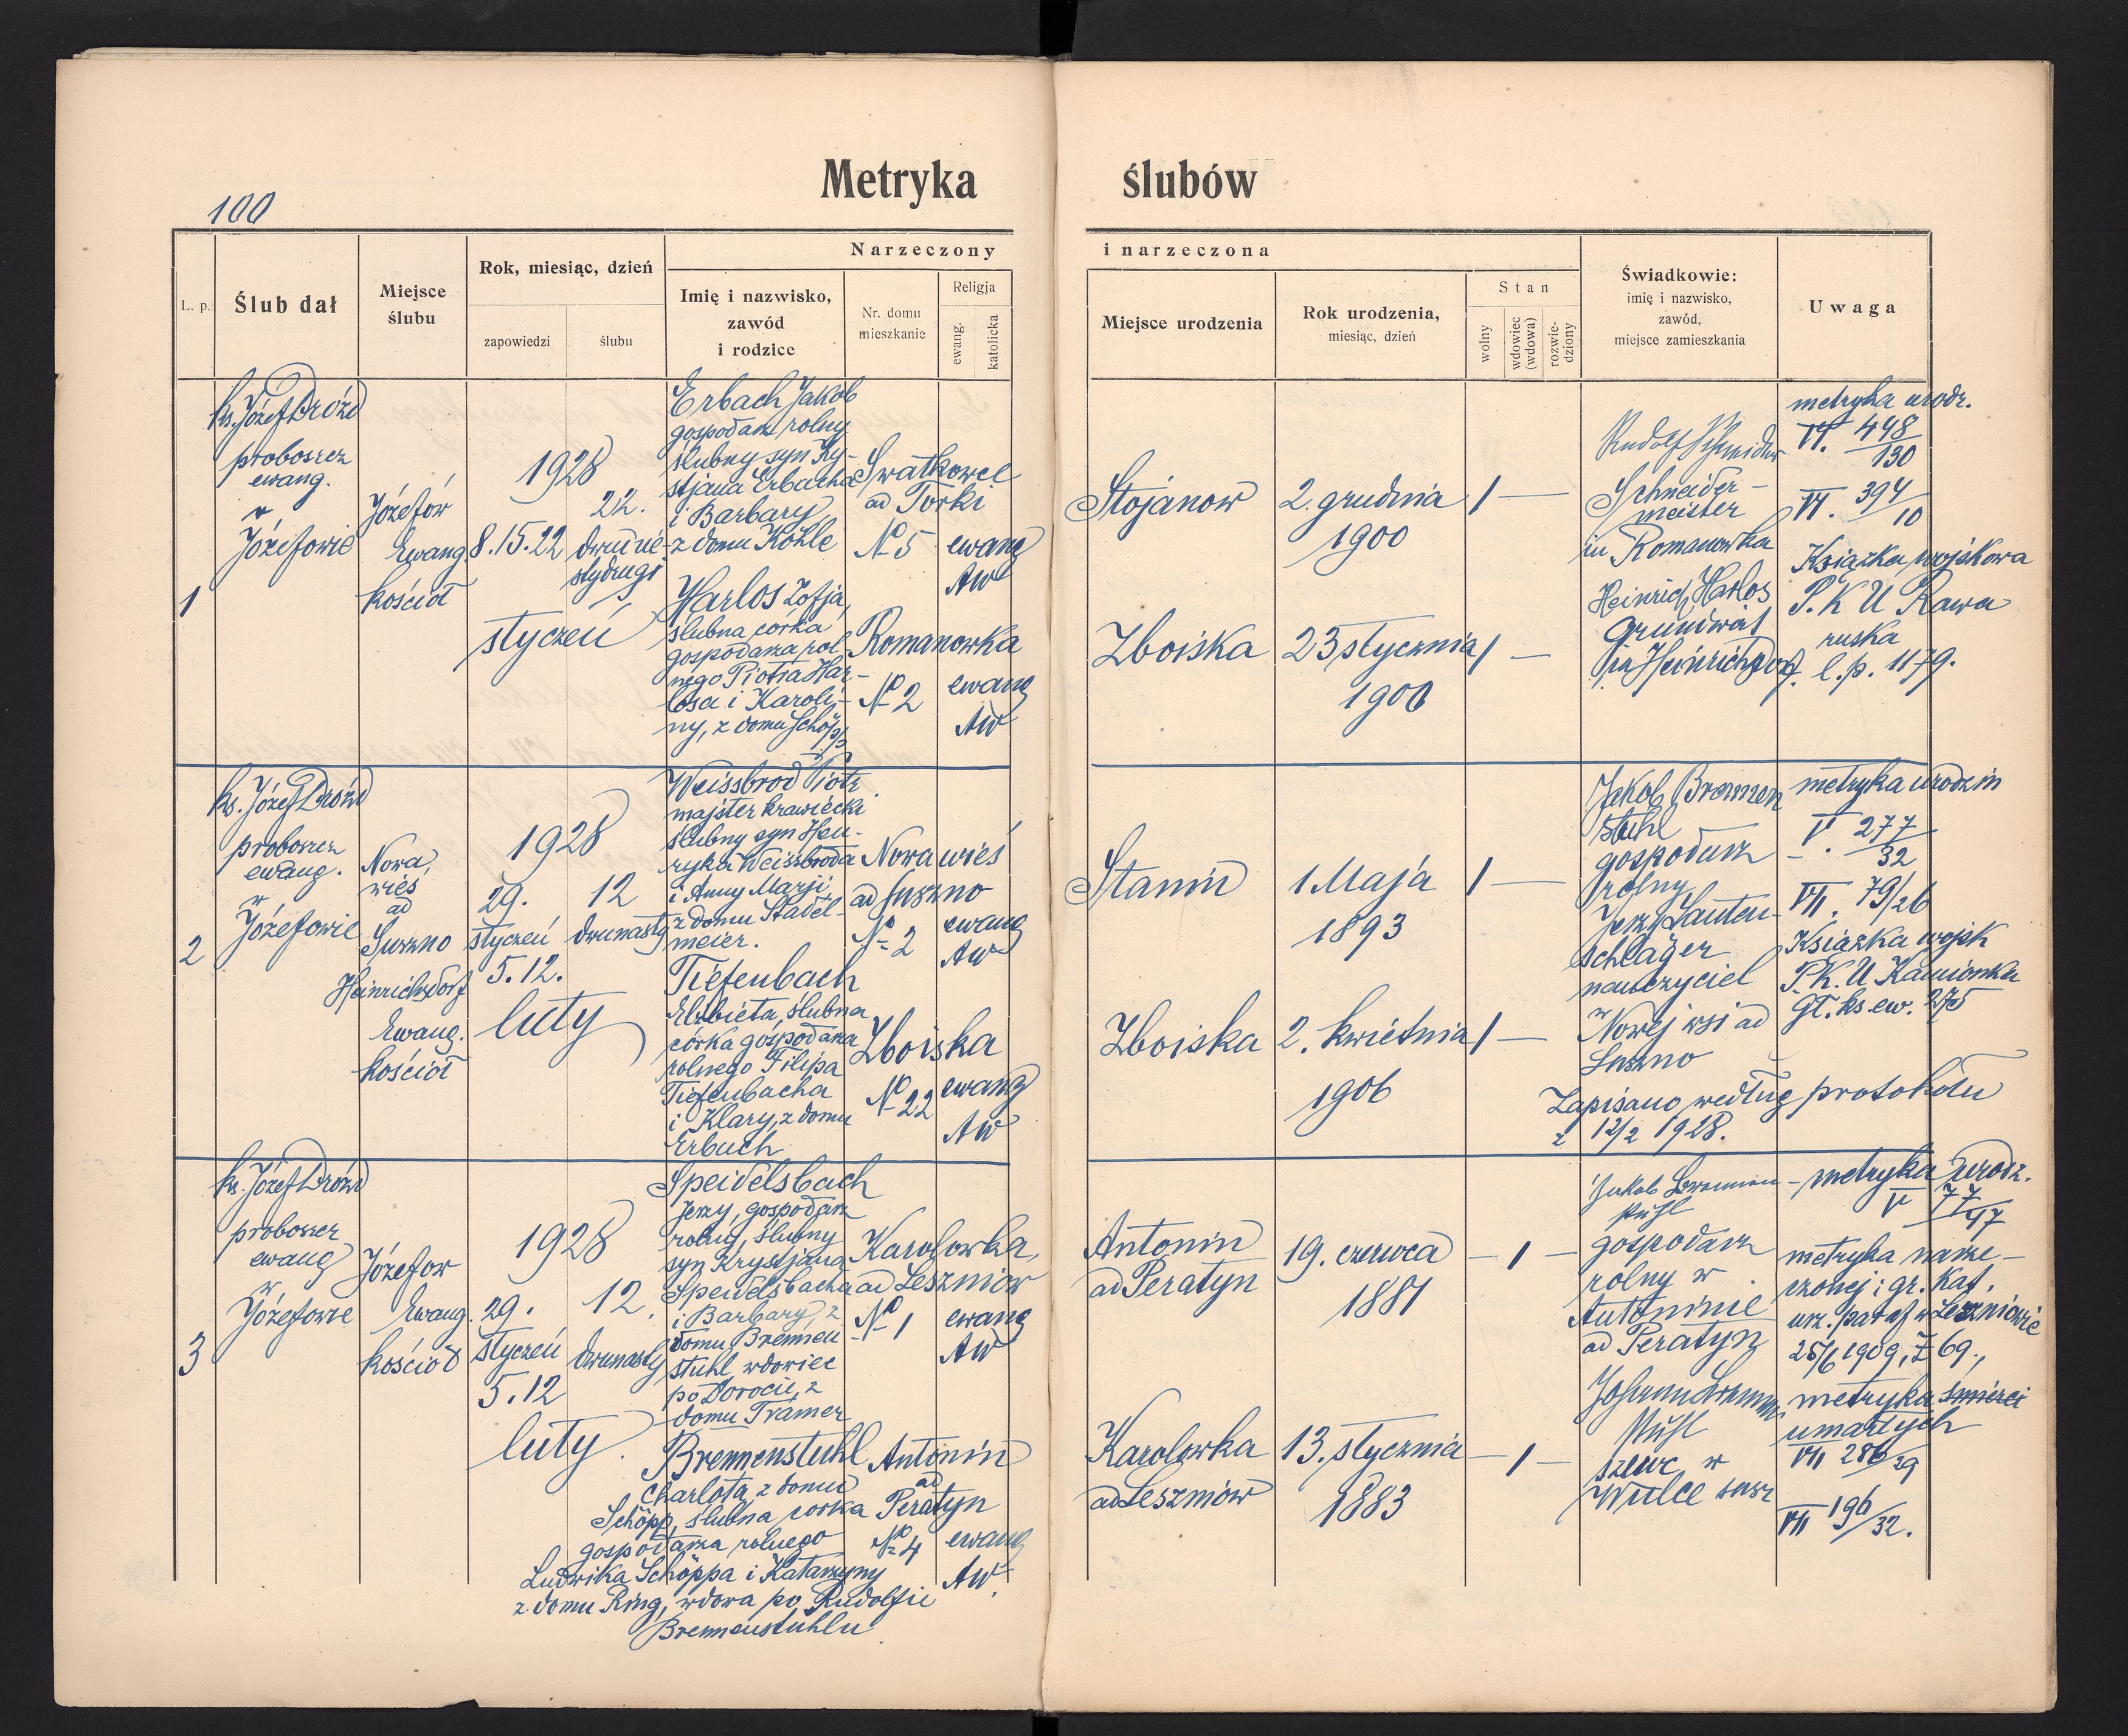 Metryka ślubów
100
Narzeczony i narzeczona
L. p.
Ślub dał
Miejsce
ślubu
Rok, miesiąc, dzień
zapowiedzi
ślubu
Imię i nazwisko,
zawód
i rodzice
Nr. domu
mieszkanie
Religja
ewang.
katolicka
Miejsce urodzenia
Rok urodzenia,
miesiąc, dzień
Stan
wolny
wdowiec
(wdowa)
rozwie-
dziony
Świadkowie:
imię i nazwisko,
zawód,
miejsce zamieszkania
Uwaga
1
ks. Józef Dróżd
proboszcz
ewang.
w
Józefowie
Józefów
Ewang.
kościół
1928
8.15.22
22.
dwudzie-
stydrugi
styczeń
Erbach Jakób
gospodarz rolny
ślubny syn Kry-
stjana Erbacha
i Barbary
z domu Köhle
Swatkowce
ad Torki
No 5
ewang
AW
Harlos Zofja,
ślubna córka
gospodarza rol-
nego Piotra Har-
losa i Karoli-
ny, z domu Schöpp
Romanowka
No 2
ewang
AW
Stojanow
2. grudnia
1900
1 —
Zboiska
23 stycznia
1900
1 —
Rudolf Schneider
Schneider-
meister
in Romanowka
Heinrich Harlos
Grundwirt
in Heinrichsdorf
metryka urodz.
VI. 448/130
VI. 394/10
Książka wojskowa
P. K U Rawa
ruska
l. p. 1179.
2
ks. Józef Dróżd
proboszcz
ewang.
w
Józefowie
Nowa
wieś
ad
Suszno
Heinrichsdorf
Ewang.
kościół
1928
29.
styczeń
5.12.
luty
12
dwunasty
Weissbrod Piotr
majster krawiecki
ślubny syn Hen-
ryka Weissbroda
i Anny Marji,
z domu Stadel-
meier.
Nowa wieś
ad Suszno
No 2
ewang
AW
Tiefenbach
Elżbieta, ślubna
córka gospodarza
rolnego Filipa
Tiefenbacha
i Klary, z domu
Erbach
Zboiska
No 22
ewang
AW
Stanin
1 Maja
1893
1 —
Zboiska
2. kwietnia
1906
1 —
Jakob Brennen
stuhl
gospodarz
rolny
Jerzy Lauten-
schläger
nauczyciel
w
Nowej wsi ad
Suszno
metryka urodzin
V. 277/32
VII. 79/26
Książka wojsk
P. K. U Kamionka
gł. ks ew. 275
Zapisano według protokołu
z 12/2 1928.
3
ks. Józef Dróżd
proboszcz
ewang
w
Józefowie
Józefow
Ewang.
kościół
1928
29.
styczeń
5.12
luty.
12.
dwunasty
Speidelsbach
Jerzy, gospodarz
rolny, ślubny
syn Krystjana
Speidelsbacha
i Barbary, z
domu Brennen
stuhl, wdowiec
po Dorocie, z
domu Tramer
Karolowka
ad Leszniow
No 1
ewang
AW
Brennenstuhl
Charlota, z domu
Schöpp, ślubna corka
gospodarza rolnego
Ludwika Schöppa i Katarzyny
z domu Ring, wdowa po Rudolfie
Brennenstuhlu
Antonin
ad
Peratyn
No 4
ewang
AW.
Antonin
ad Peratyn
19. czerwca
1881
— 1 —
Karolowka
ad Leszniow
13. stycznia
1883
— 1 —
Jakob Brennen-
stuhl
gospodarz
rolny w
Antoninie
ad Peratyn
Johann Brennen
stuhl
szewc w
Wulce susz
metryka urodz.
V 77/17
metryka narze-
czonej: gr. kat.
urz. paraf w Leszniowie
25/6 1909, Z 69.,
metryka śmierci
umarłych
VII 286/29
VII 196/32.